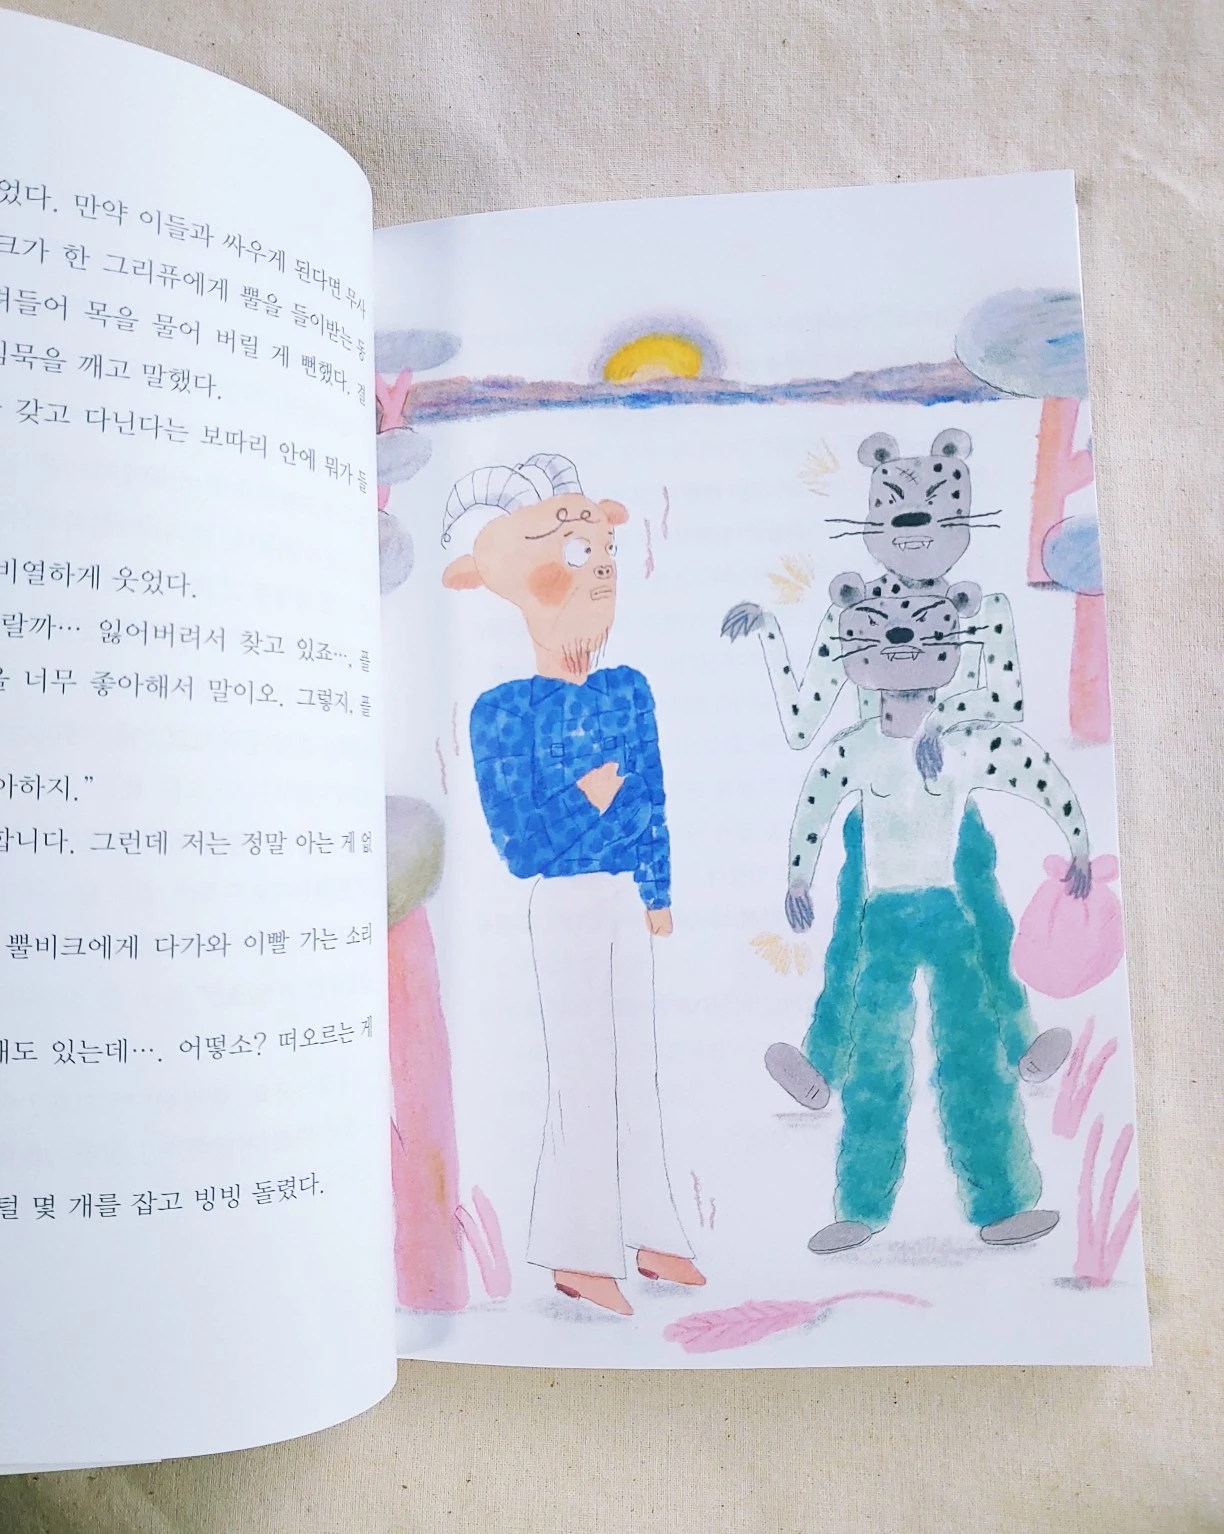 었다. 만약 이들과 싸우게 된다면 무사
크가 한 그리퓨에게 뿔을 들이받는 동
려들어 목을 물어 버릴 게 뻔했다. 결
침묵을 깨고 말했다.
갖고 다닌다는 보따리 안에 뭐가 들
비열하게 웃었다.
랄까… 잃어버려서 찾고 있죠…, 플
을 너무 좋아해서 말이오. 그렇지, 플
아하지.”
합니다. 그런데 저는 정말 아는 게 없
뿔비크에게 다가와 이빨 가는 소리
래도 있는데…. 어떻소? 떠오르는 게
털 몇 개를 잡고 빙빙 돌렸다.